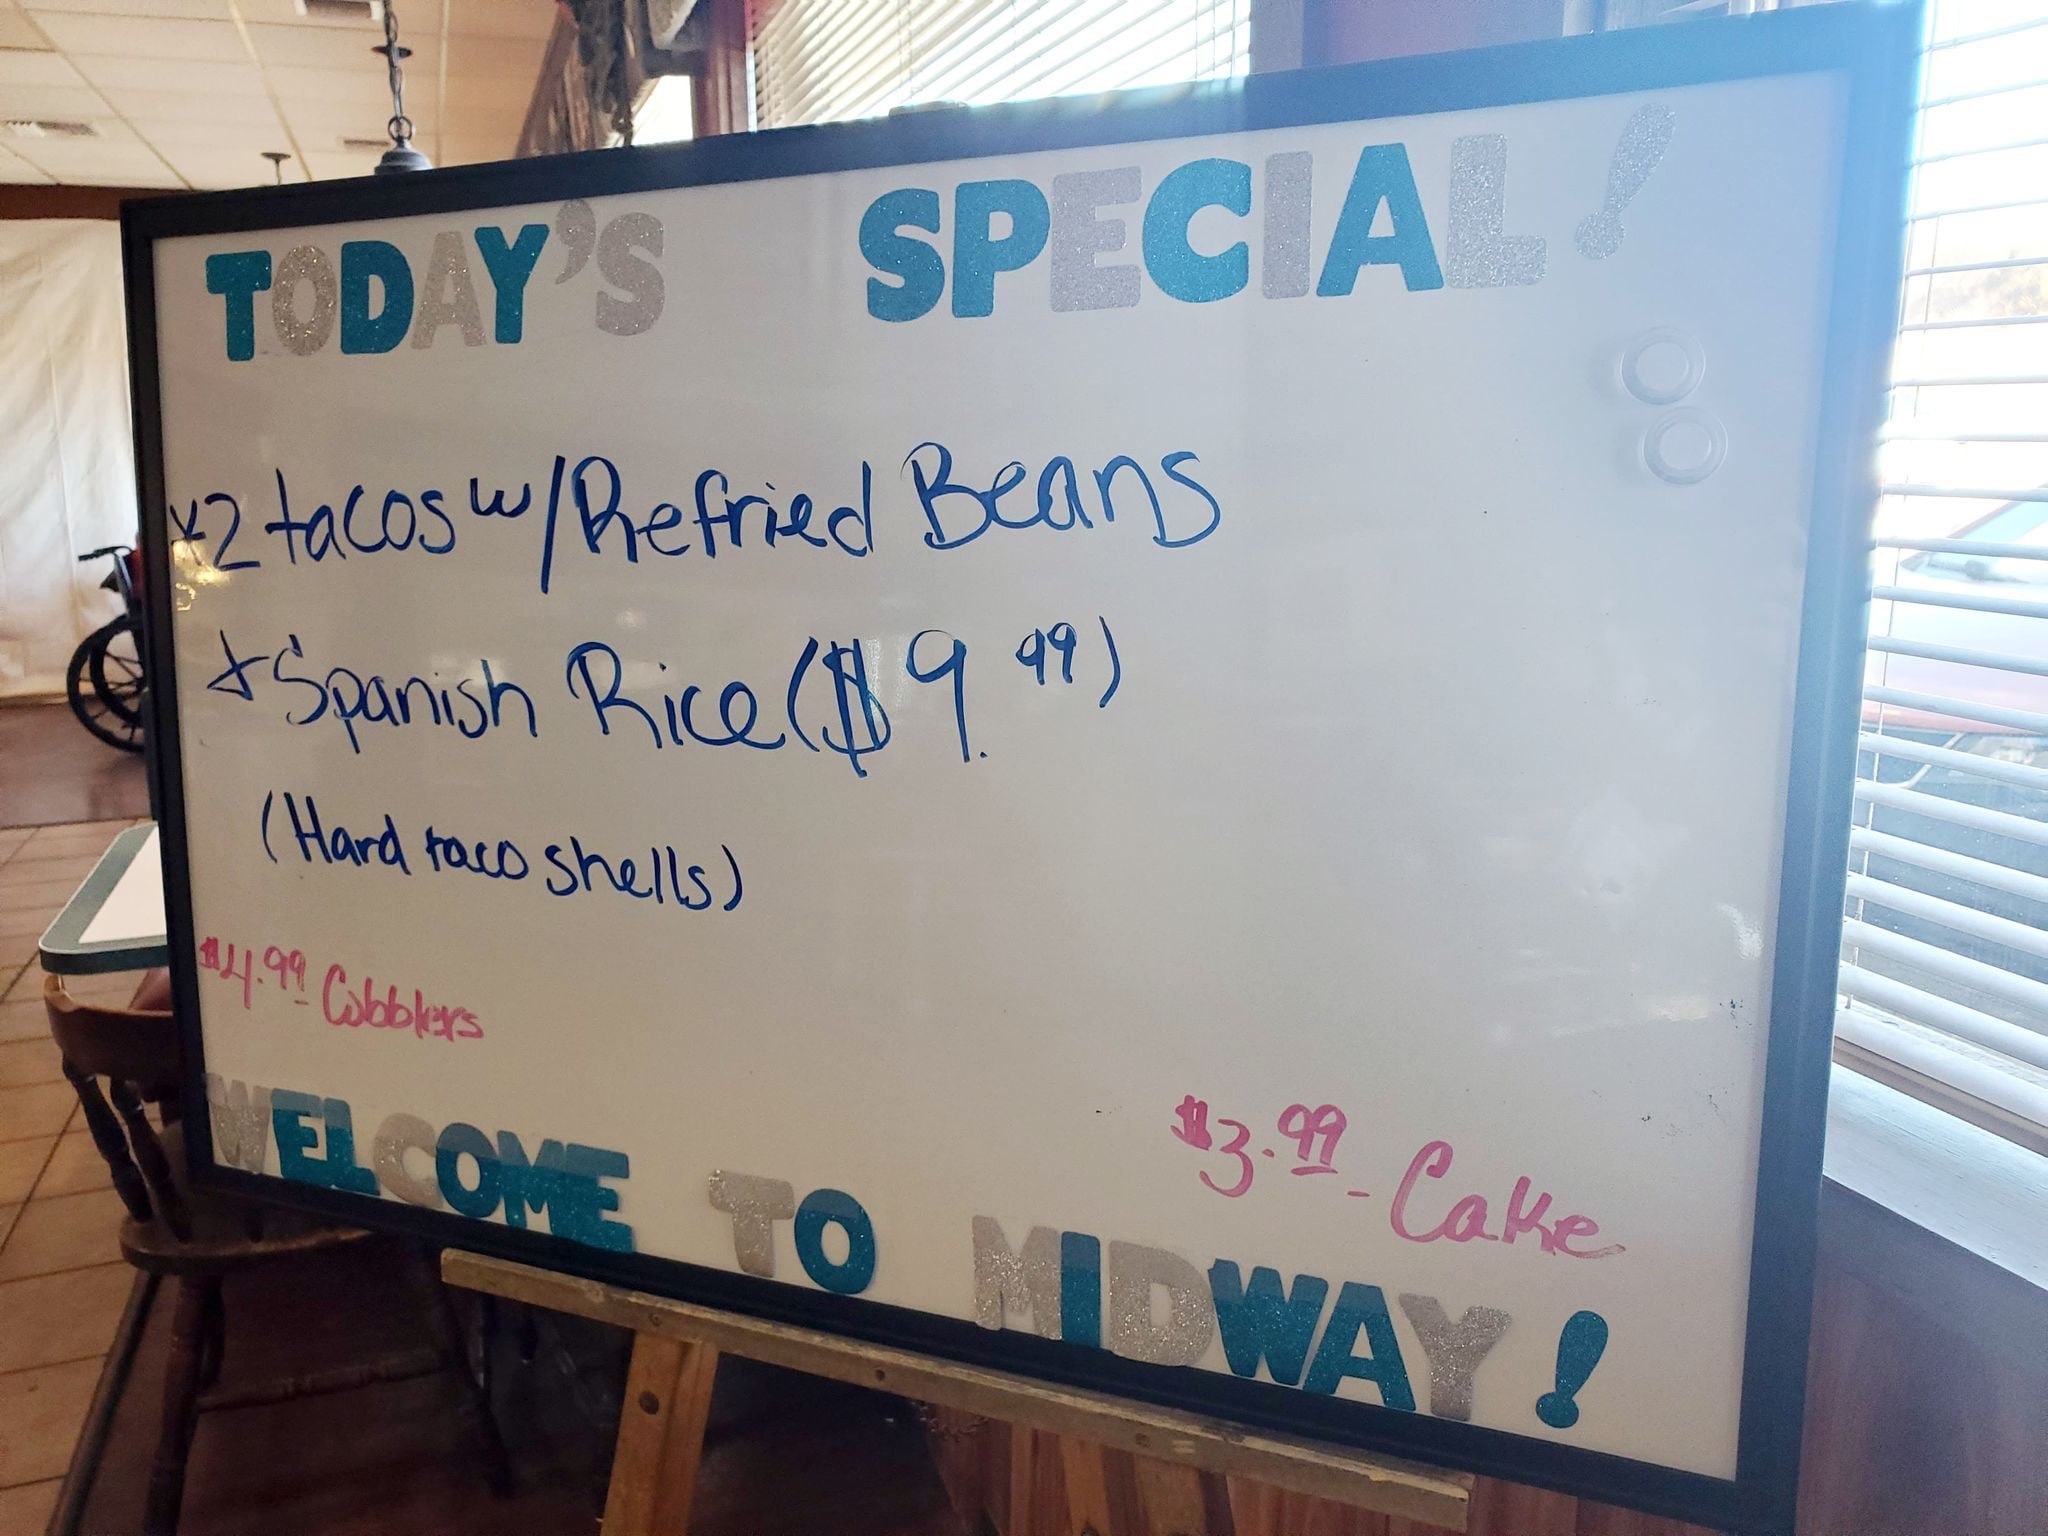 TODAY'S SPECIAL!
*2 tacos w/Refried Beans
+ Spanish Rice ($9.99)
(Hard taco shells)
$4.99 Cobblers
$3.99 - Cake
WELCOME TO MIDWAY!